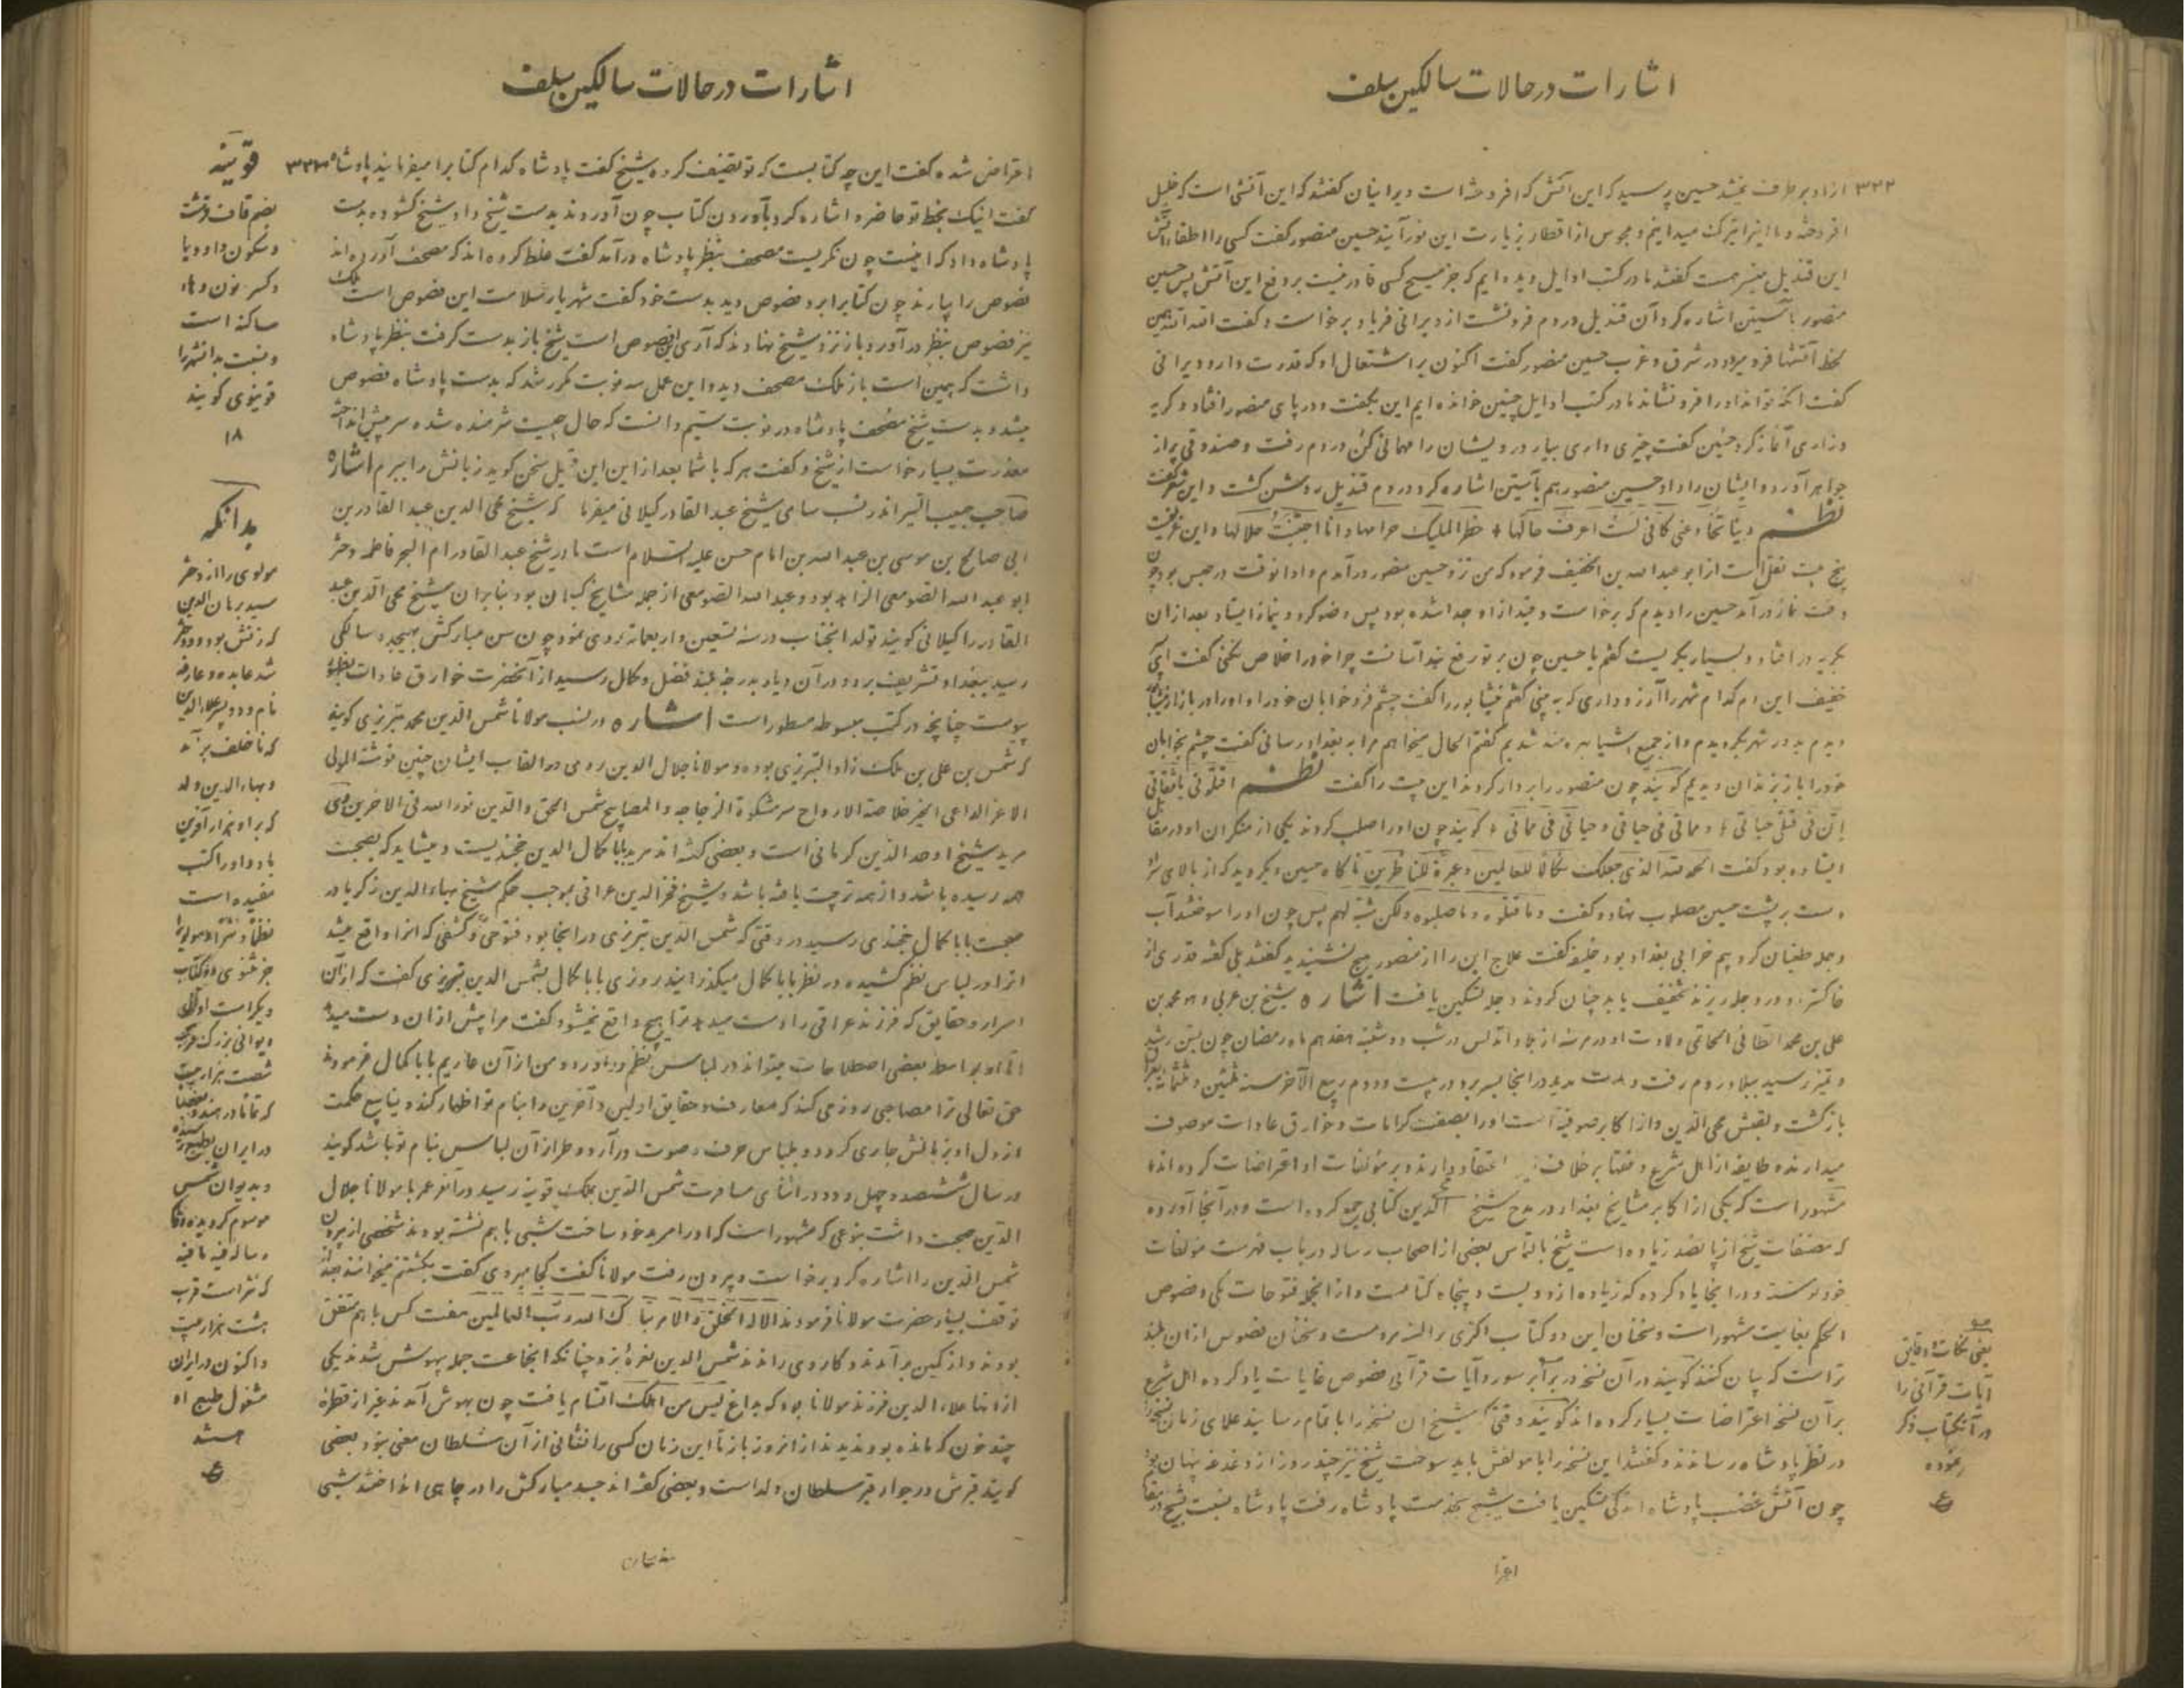 اشارات در حالات سالکین سلف
۳۲۲ ازاد بر طرف نمیشد حسین پرسید که این آتش که افروخته است دیرانیان گفتند که این آتشی است که خلیل
افروخته و ما اینرا تبرک میدانیم و مجوس از اقطار بزیارت این نور آیند حسین منصور گفت کسی را اطفاء آتش
این قندیل میسر هست گفتند ما در کتب اوایل دیده ایم که جز مسیح کسی قادر نیست بر دفع این آتش پس حسین
منصور بآستین اشاره کرد آن قندیل در دم فرو نشست از دیرانی فریاد برخواست و گفت الله الله همین
لحظه آتشها فرو میرود در شرق و غرب حسین منصور گفت اکنون بر اشتعال او که قدرت دارد دیرانی
گفت آنکه تواند او را فرو نشاند ما در کتب اوایل چنین خوانده ایم این بگفت و در پای منصور افتاد و گریه
و زاری آغاز کرد حسین گفت چیزی داری بیار درویشان را مهمانی کن در دم رفت و صندوقی پر از
جواهر آورد و ایشان را داد حسین منصور هم بآستین اشاره کرد در دم قندیل روشن گشت و این شعر گفت
نظم دنیا تخادعنی کانی لست اعرف حالها * حظر الملیک حرامها و انا اجتنبت حلالها و این غزلیت
پنج بیت نقل است از ابو عبد الله بن الخفیف فرمود که من نزد حسین منصور درآمدم و او انوقت در حبس بود چون
وقت نماز درآمد حسین را دیدم که برخواست و قید از او جدا شده بود پس وضو کرد و بنماز ایستاد بعد از ان
بگریه درافتاد و بسیار بگریست گفتم یا حسین چون بر تو رفع بند آسانست چرا خود را خلاص نکنی گفت ای
خفیف این ام کدام شهر را آرزو داری که به بینی گفتم نیشابور را گفت چشم فرو خوابان خود را و او را در بازار نیشابور
دیدم و در شهر بگردیدم و از جمیع اشیا بهره مند شدیم گفتم الحال میخواهم مرا به بغداد رسانی گفت چشم بخوابان
خود را باز بزندان دیدیم گویند چون منصور را بردار کردند این بیت را گفت نظم اقتلونی یا ثقاتی
اِنّ فی قتلی حیاتی * و مماتی فی حیاتی و حیاتی فی مماتی * گویند چون او را صلب کردند یکی از منکران او در مقابل
ایستاده بود گفت الحمد لله الذی جعلک نکالا للعالمین و عبرة للناظرین ناگاه حسین دیگر دید که از بالای سر
دست بر پشت حسین مصلوب نهاد و گفت و ما قتلوه و ما صلبوه ولکن شبه لهم پس چون او را سوختند آب
دجله طغیان کرد بیم خرابی بغداد بود خلیفه گفت علاج این را از منصور هیچ نشنیدید گفتند بلی گفته قدری از
خاکسترم در دجله ریزند تخفیف یابد چنان کردند دجله تسکین یافت اشاره شیخ بن عربی و هو محمد بن
علی بن محمد الطائی الحاتمی ولادت او در مرسه از بلاد اندلس در شب دوشنبه هفدهم ماه رمضان چون بسن رشد
و تمیز رسید ببلاد روم رفت و مدت مدید در انجا بسر برد در بیست و دوم ربیع الآخر سنه
بازگشت و لقبش محی الدین و از اکابر صوفیه است او را بصفت کرامات و خوارق عادات موصوف
میدارند و طایفه از اهل شرع و فقها بر خلاف اعتقاد دارند و بر مؤلفات او اعتراضات کرده اند
مشهور است که یکی از اکابر مشایخ بغداد در مدح شیخ الدین کتابی جمع کرده است و در آنجا آورده
که مصنفات شیخ از پانصد زیاده است شیخ بالتماس بعضی از اصحاب رساله در باب فهرست مؤلفات
خود نوشته و در انجا یاد کرده که زیاده از دویست و پنجاه کتابست و از انجمله فتوحات مکی و فصوص
الحکم بغایت مشهور است و سخنان این دو کتاب اکثری بر السنه مردمست و سخنان فصوص ازان بلند
تر است که بیان کنند گویند در آن نسخه در برابر سوره و آیات قرآنی فصوص غایات یاد کرده اهل شرع
بر آن نسخه اعتراضات بسیار کرده اند گویند وقتی که شیخ ان نسخه را باتمام رسانید علمای زمان نسخه را
در نظر پادشاه رساندند و گفتند این نسخه را با مولفش باید سوخت شیخ نیز چند روز از دغدغه پنهان بود
چون آتش غضب پادشاه اندکی تسکین یافت شیخ بخدمت پادشاه رفت پادشاه نسبت بشیخ در مقام
اعترا
یعنی نکات و دقایق
آیات قرآنی را
در آنکتاب ذکر
نموده
اشارات در حالات سالکین سلف
اعتراض شده گفت این چه کتابست که تو تصنیف کرده شیخ گفت پادشاه کدام کتابرا میفرمایند پادشاه ۳۲۳
گفت اینک بخط تو حاضر و اشاره کرد بآوردن کتاب چون آوردند بدست شیخ داد شیخ گشوده بدست
پادشاه داد که اینست چون نگریست مصحف بنظر پادشاه درآمد گفت غلط کرده اند که مصحف آورده اند
فصوص را بیارند چون کتابرا برد فصوص دید بدست خود گفت شهریار سلامت این فصوص است ملک
نیز فصوص بنظر درآورد باز نزد شیخ نهادند که آری این فصوص است شیخ باز بدست گرفت بنظر پادشاه
داشت که همین است باز ملک مصحف دید و این عمل سه نوبت مکرر شد که بدست پادشاه فصوص
میشد و بدست شیخ مصحف پادشاه در نوبت سیّم دانست که حال چیست شرمنده شده سر پیش انداخته
معذرت بسیار خواست از شیخ و گفت هر که با شما بعد از این این قبیل سخن گوید زبانش را ببرم اشاره
صاحب حبیب السیر اندر نسب سامی شیخ عبد القادر گیلانی میفرماید که شیخ محی الدین عبد القادر بن
ابی صالح بن موسی بن عبد الله بن امام حسن علیه السلام است مادر شیخ عبد القادر ام الخیر فاطمه دختر
ابو عبد الله الصومعی الزاهد بود و عبد الله الصومعی از جمله مشایخ گیلان بود بنابران شیخ محی الدین عبد
القادر را گیلانی گویند تولد انجناب در سنه تسعین و اربعمائه روی نمود چون سن مبارکش بهیجده سالگی
رسید ببغداد تشریف برد و در آن دیار بدرجه بلند فضل و کمال رسید از آنحضرت خوارق عادات بظهور
پیوست چنانچه در کتب مبسوطه مسطور است اشاره در نسب مولانا شمس الدین محمد تبریزی گویند
که شمس بن علی بن ملک زاد التبریزی بوده و مولانا جلال الدین رومی در القاب ایشان چنین نوشته المولی
الاعز الداعی الی الخیر خلاصة الارواح سر مشکوة الزجاجه و المصابیح شمس الحق والدین نور الله فی الاخرین وی
مرید شیخ اوحد الدین کرمانی است و بعضی گفته اند مرید بابا کمال الدین خجندیست و میشاید که بصحبت
همه رسیده باشد و از همه تربیت یافته باشد و شیخ فخر الدین عراقی بموجب حکم شیخ بهاء الدین زکریا در
صحبت بابا کمال خجندی رسید در وقتی که شمس الدین تبریزی در انجا بود فتوحی و کشفی که انرا واقع میشد
انرا در لباس نظم کشیده در نظر بابا کمال میگذرانید روزی بابا کمال بشمس الدین تبریزی گفت که ازآن
اسرار و حقایق که فرزند عراقی را دست میدهد ترا هیچ واقع نمیشود گفت مرا پیش ازان دست میدهد
اما او بواسطه بعضی اصطلاحات میتواند در لباس نظم درآورد و من از آن عاریم بابا کمال فرمودند
حق تعالی ترا مصاحبی روزی کند که معارف و حقایق اولین و آخرین را بنام تو اظهار کند و ینابیع حکمت
از دل او بزبانش جاری گردد و بلباس حرف و صوت درآرد و طراز آن لباس بنام تو باشد گویند
در سال ششصد و چهل و دو در اثنای مسافرت شمس الدین بملک قوینه رسید در آخر عمر با مولانا جلال
الدین صحبت داشت بنوعی که مشهور است که او را مرید خود ساخت شبی با هم نشسته بودند شخصی از بیرون
شمس الدین را اشاره کرد برخواست و بیرون رفت مولانا گفت کجا میروی گفت بکشتنم میخوانند بعد
توقف بسیار حضرت مولانا فرمودند الا له الخلق والامر تبارک الله رب العالمین هفت کس با هم متفق
بودند و از کمین برآمدند و کاردی راندند شمس الدین نعره بزد چنانکه انجماعت جمله بیهوش شدند یکی
ازانها علاء الدین فرزند مولانا بود که بداغ لیس من اهلک اتسام یافت چون بهوش آمدند غیر از قطره
چند خون که مانده بود ندیدند از انروز باز تا این زمان کسی را نشانی از آن سلطان معنی نبود بعضی
گویند قبرش در جوار قبر سلطان ولد است و بعضی گفته اند جسد مبارکش را در چاهی انداختند شبی
قوینه
بضم قاف قرشت
و سکون واو و یا
و کسر نون و هاء
ساکنه است
و نسبت بدانشهر را
قوینوی گویند
۱۸
بدانکه
مولوی را از دختر
سید برهان الدین
که زنش بود دو دختر
شد عابده و عارفه
نام و دو پسر علاء الدین
که ناخلف برآمد
و بهاء الدین ولد
که بر او هزار آفرین
باد و او را کتب
مفیده است
نظماً و نثراً و مولویرا
جز مثنوی دو کتاب
دیگر است اول
دیوانی بزرگ
شصت هزار بیت
که تماما در هند و
در ایران بطبع رسیده
و بدیوان شمس
موسوم گردیده و
رساله فیه ما فیه
که نثر است قریب
هشت هزار بیت
و اکنون در ایران
مشغول طبع او
هستند